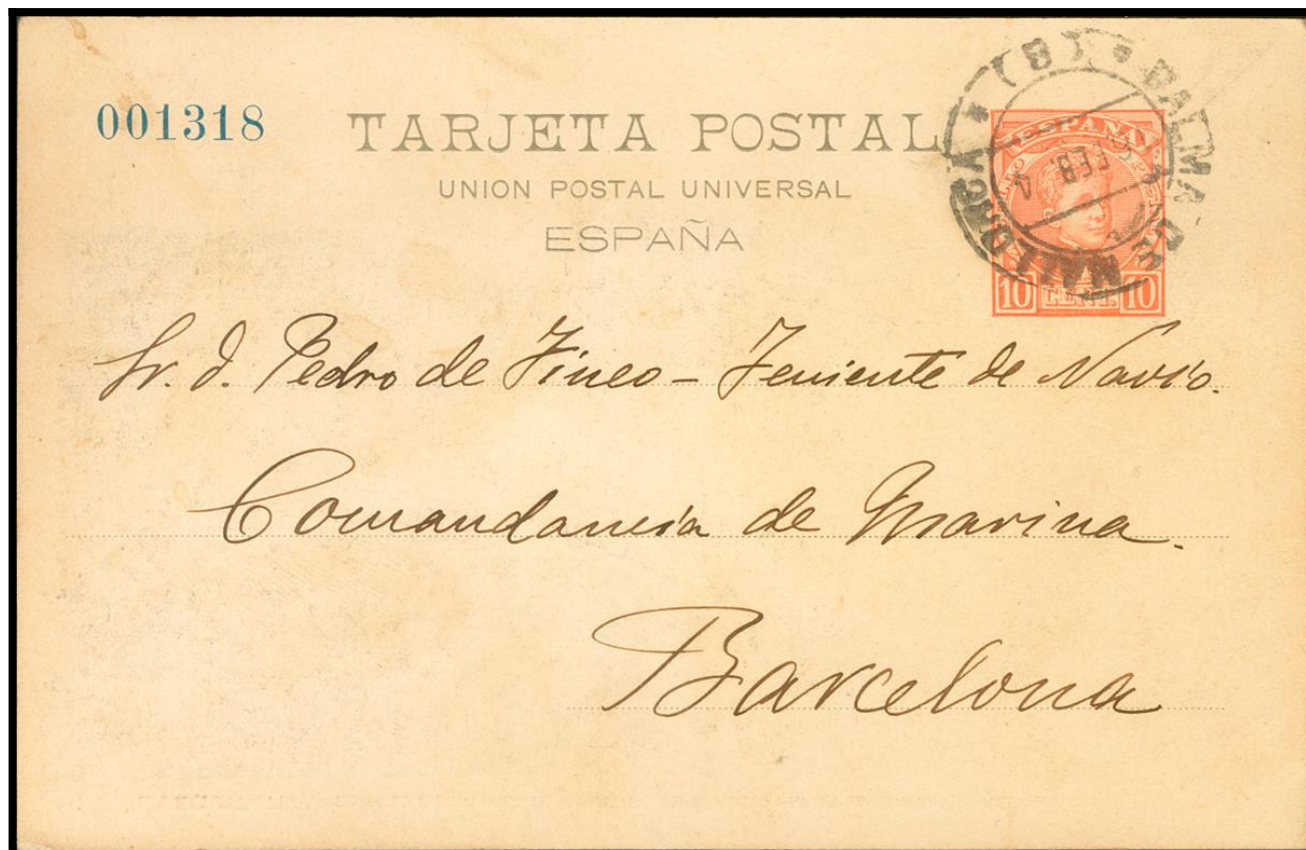 001318
TARJETA POSTAL
UNION POSTAL UNIVERSAL
ESPAÑA
PALMA DE MALLORCA * (B) *
FEB 4
ESPAÑA
10 CENT. 10
Sr. D. Pedro de Fineo - Teniente de Navío.
Comandancia de Marina.
Barcelona